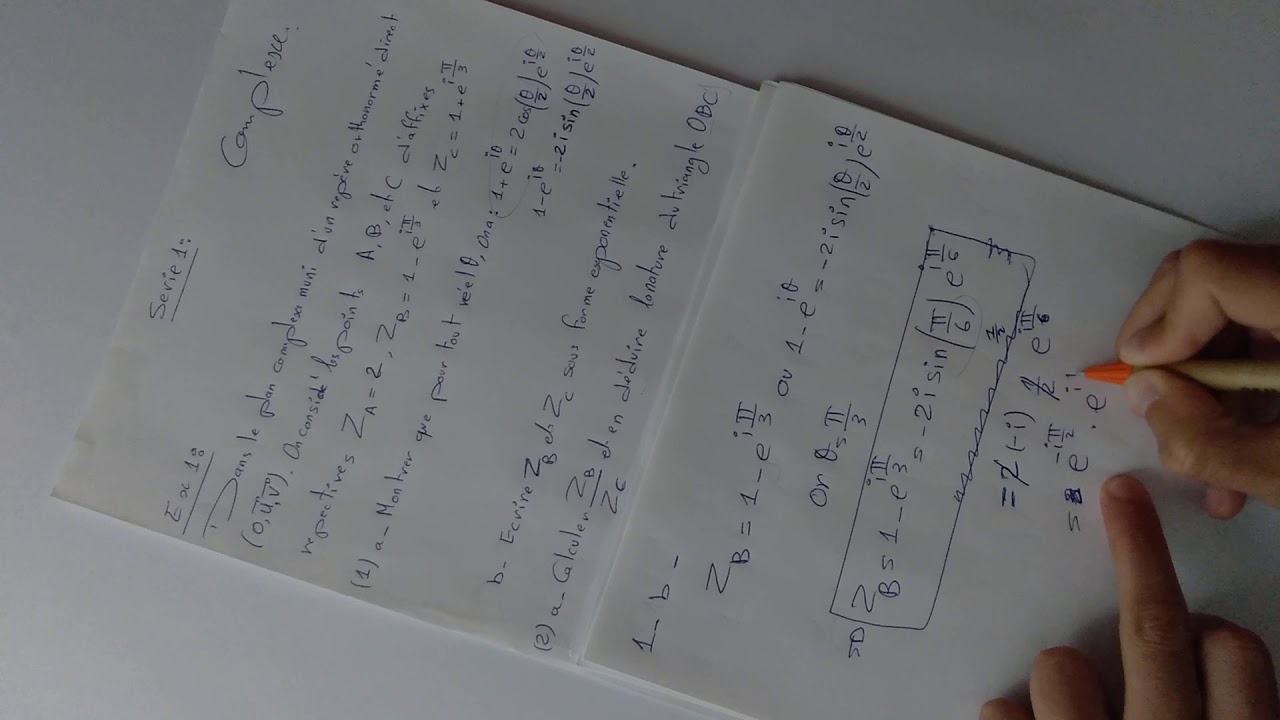 Complexe.
Serie 1:
Ex 1:
Dans le plan complexe muni d'un repère orthonormé direct
(O, u⃗, v⃗). On considé les points A, B, et C d'affixes
repectives Z_A = 2, Z_B = 1 - e^{iπ/3} et Z_C = 1 + e^{iπ/3}
(1) a - Montrer que pour tout réel θ, on a: 1 + e^{iθ} = 2 cos(θ/2) e^{iθ/2}
1 - e^{iθ} = -2i sin(θ/2) e^{iθ/2}
b - Ecrire Z_B et Z_C sous forme exponentielle.
(2) a - Calculer Z_B/Z_C et en déduire la nature du triangle OBC
1 - b -
Z_B = 1 - e^{iπ/3} ou 1 - e^{iθ} = -2i sin(θ/2) e^{iθ/2}
or θ = π/3
=D Z_B = 1 - e^{iπ/3} = -2i sin(π/6) e^{iπ/6}
= 2 (-i) 1/2 e^{iπ/6}
= e^{-iπ/2} . e^{i